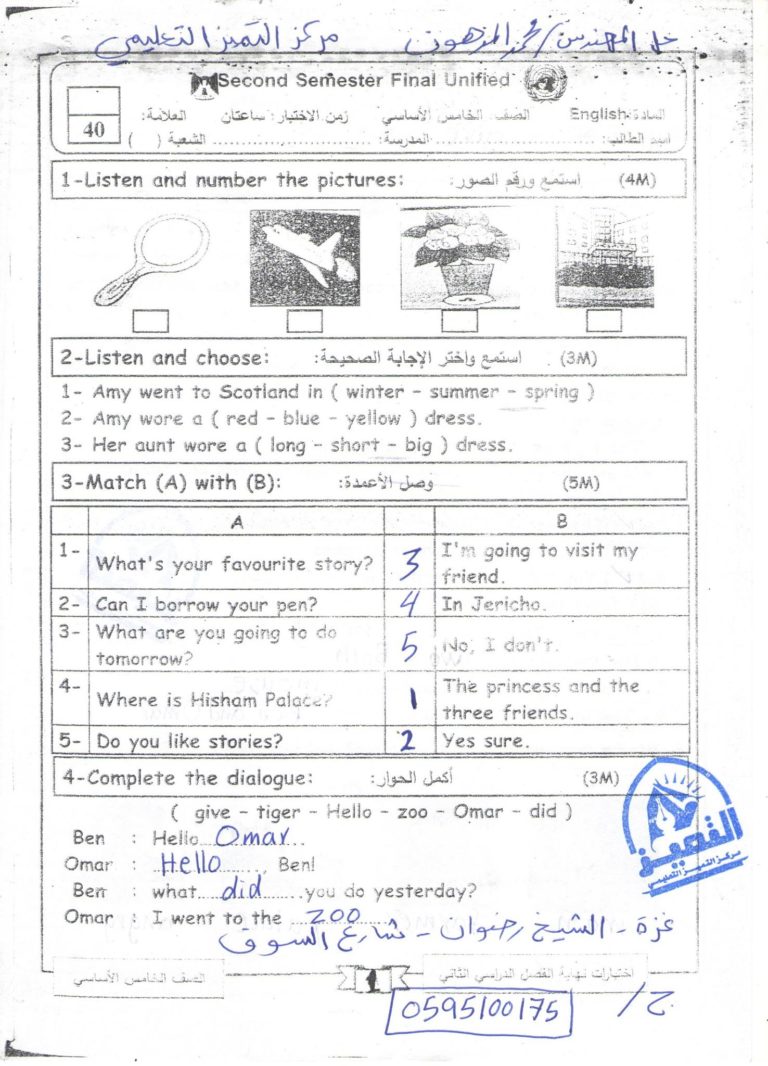 حل المهندس / محمد المزهوني مركز التميز التعليمي
Second Semester Final Unified
المادة: English الصف: الخامس الأساسي زمن الاختبار: ساعتان العلامة:
40
اسم الطالب: المدرسة: الشعبة ( )
1-Listen and number the pictures: استمع ورقم الصور: (4M)
2-Listen and choose: استمع واختر الإجابة الصحيحة: (3M)
1- Amy went to Scotland in ( winter - summer - spring )
2- Amy wore a ( red - blue - yellow ) dress.
3- Her aunt wore a ( long - short - big ) dress.
3-Match (A) with (B): وصل الأعمدة: (5M)
A B
1- What's your favourite story? 3 I'm going to visit my friend.
2- Can I borrow your pen? 4 In Jericho.
3- What are you going to do tomorrow? 5 No, I don't.
4- Where is Hisham Palace? 1 The princess and the three friends.
5- Do you like stories? 2 Yes sure.
4-Complete the dialogue: أكمل الحوار: (3M)
( give - tiger - Hello - zoo - Omar - did )
Ben : Hello Omar
Omar : Hello, Ben!
Ben : what did you do yesterday?
Omar : I went to the zoo
غزة - الشيخ رضوان - شارع السوق
التميز
مركز التميز التعليمي
اختبارات نهاية الفصل الدراسي الثاني
1
الصف الخامس الأساسي
ج / 0595100175